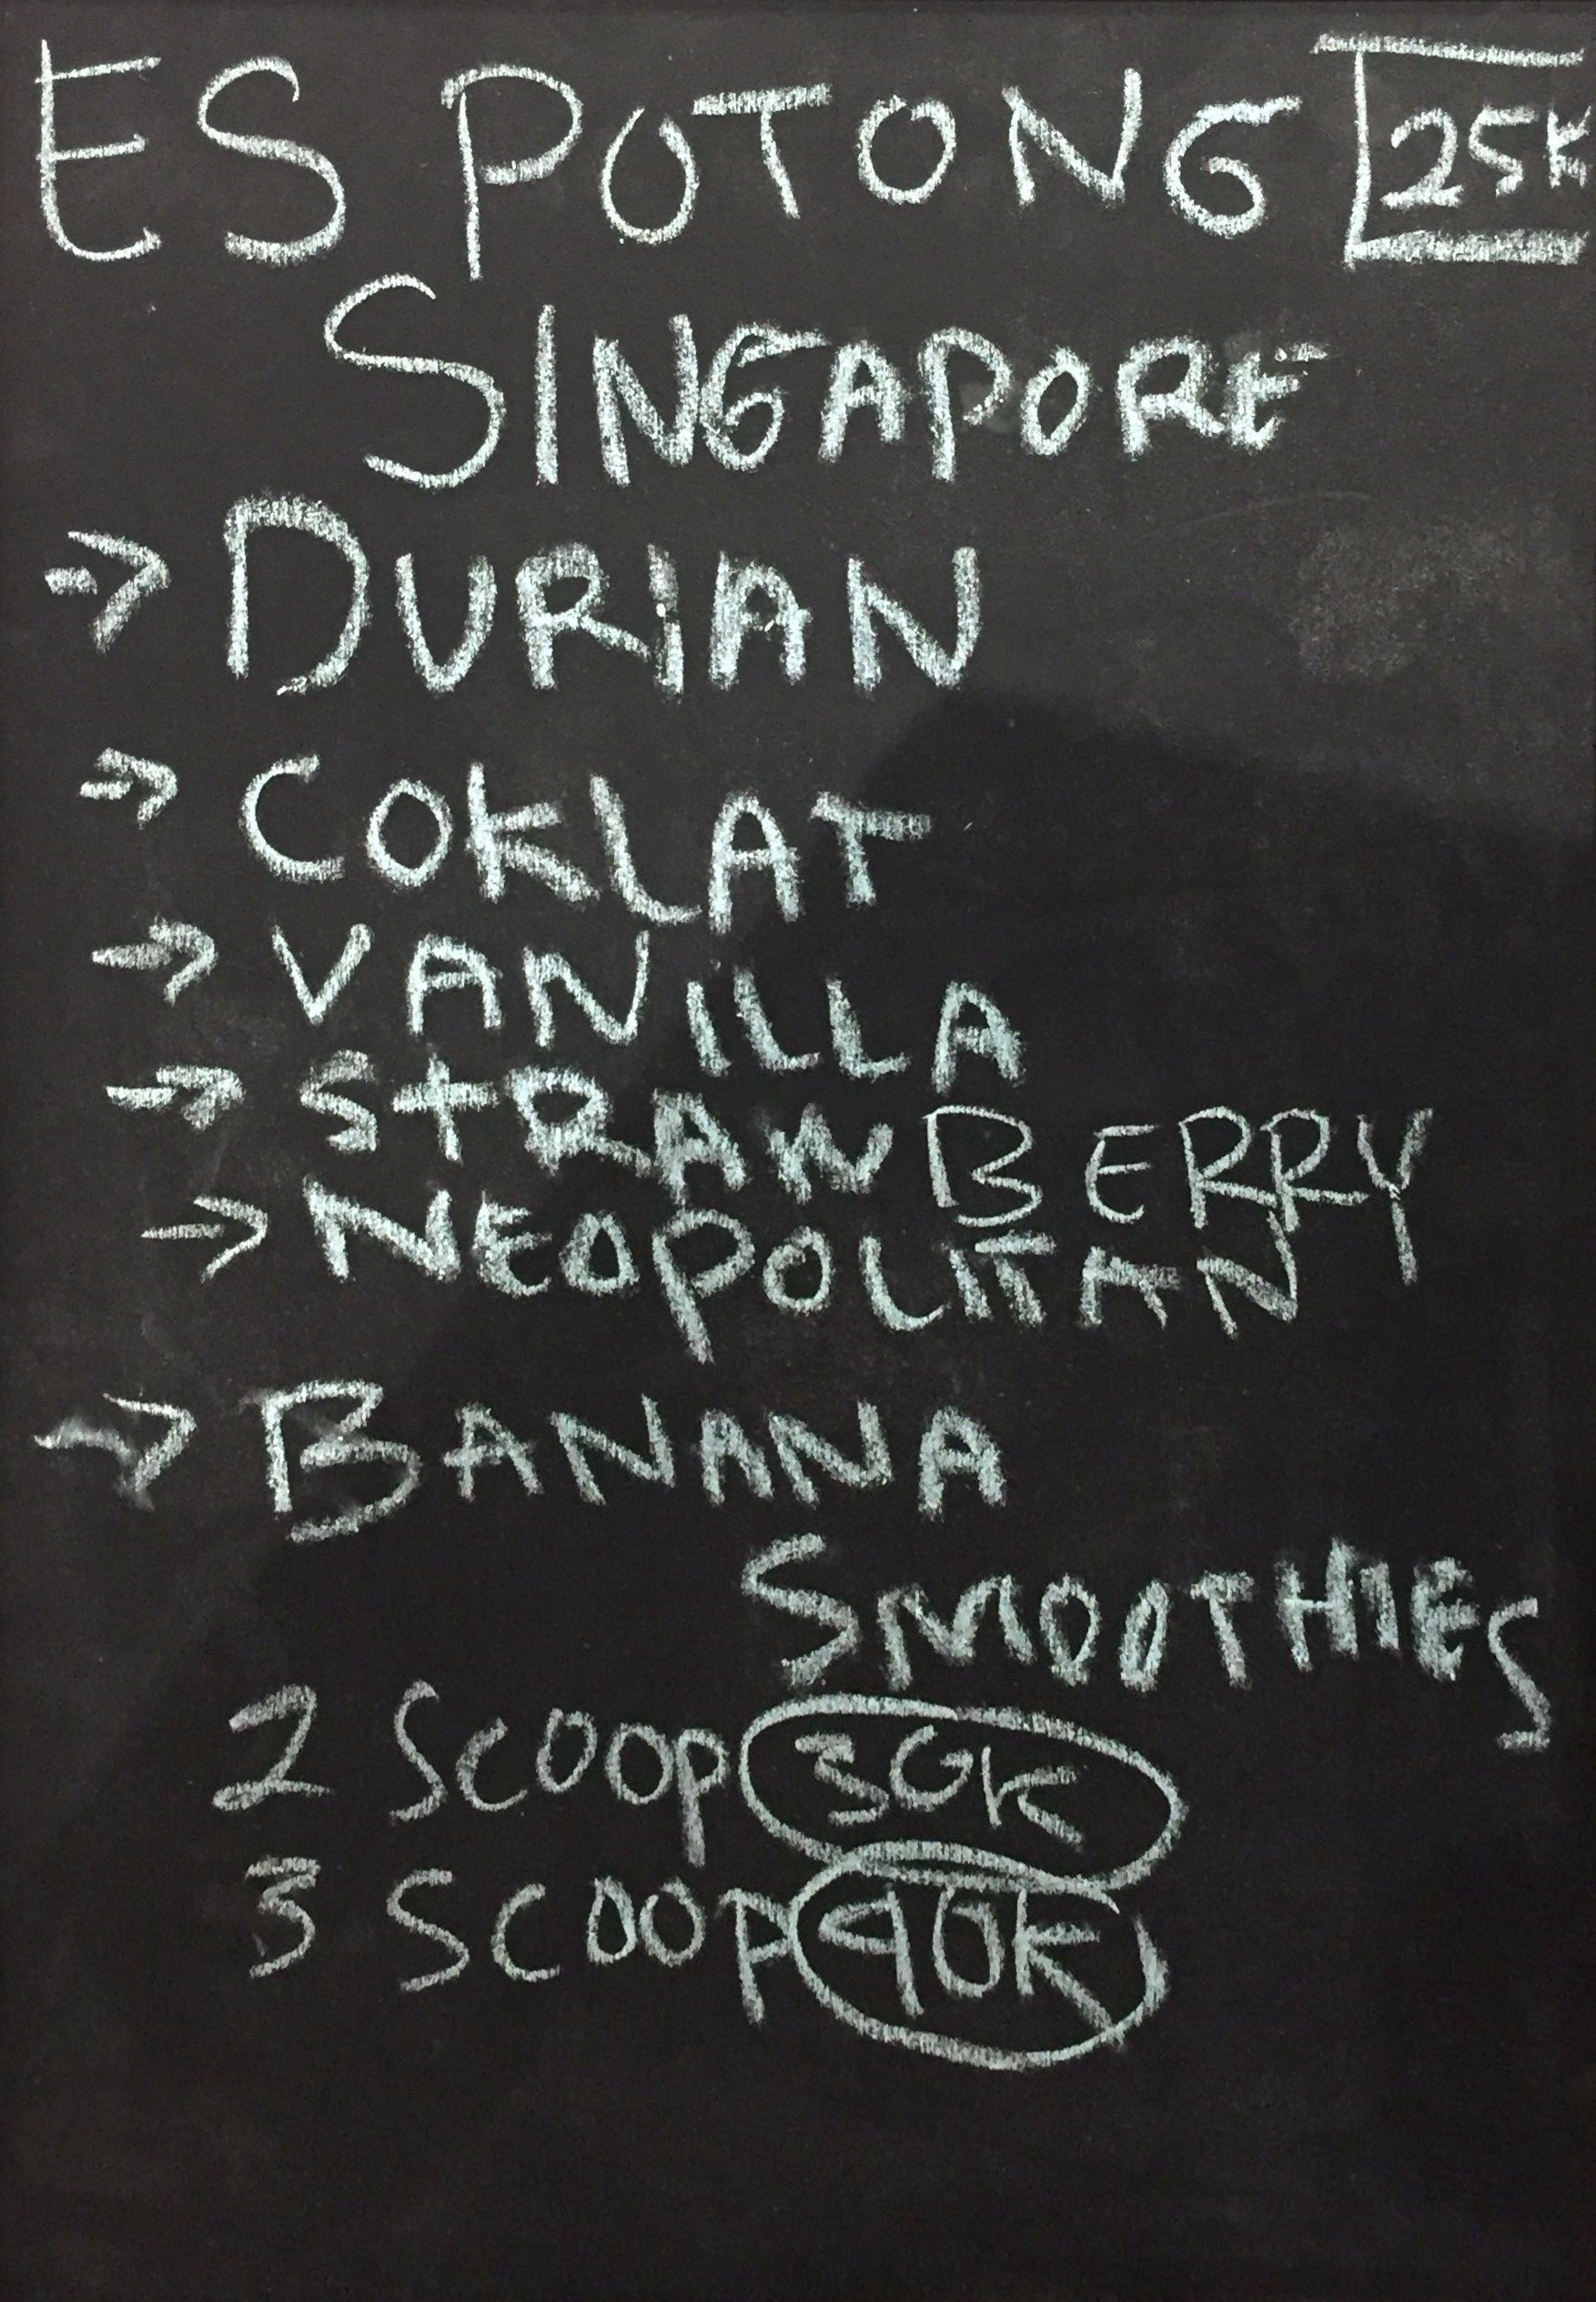 ES POTONG 25K
SINGAPORE
→ DURIAN
→ COKLAT
→ VANILLA
→ STRAWBERRY
→ NEOPOLITAN
→ BANANA
SMOOTHIES
2 SCOOP 30K
3 SCOOP 40K